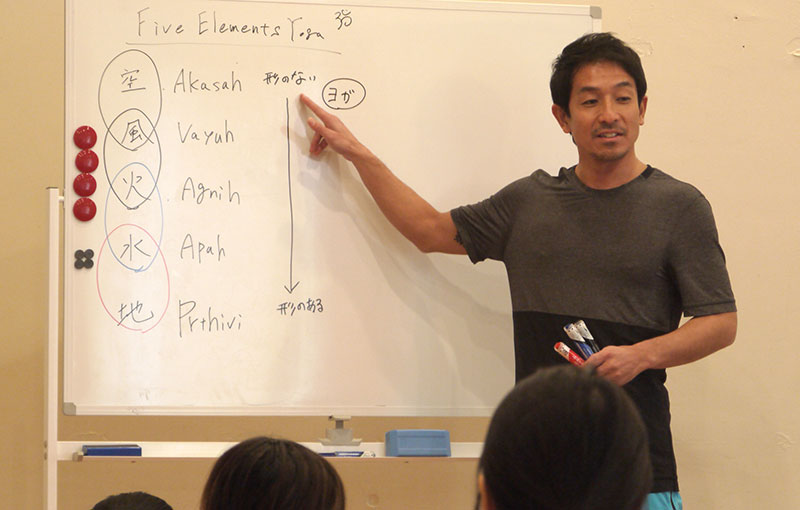 Five Elements Yoga
空 Akasah 形のない
ヨガ
風 Vayuh
火 Agnih
水 Apah
形のある
地 Prthivi